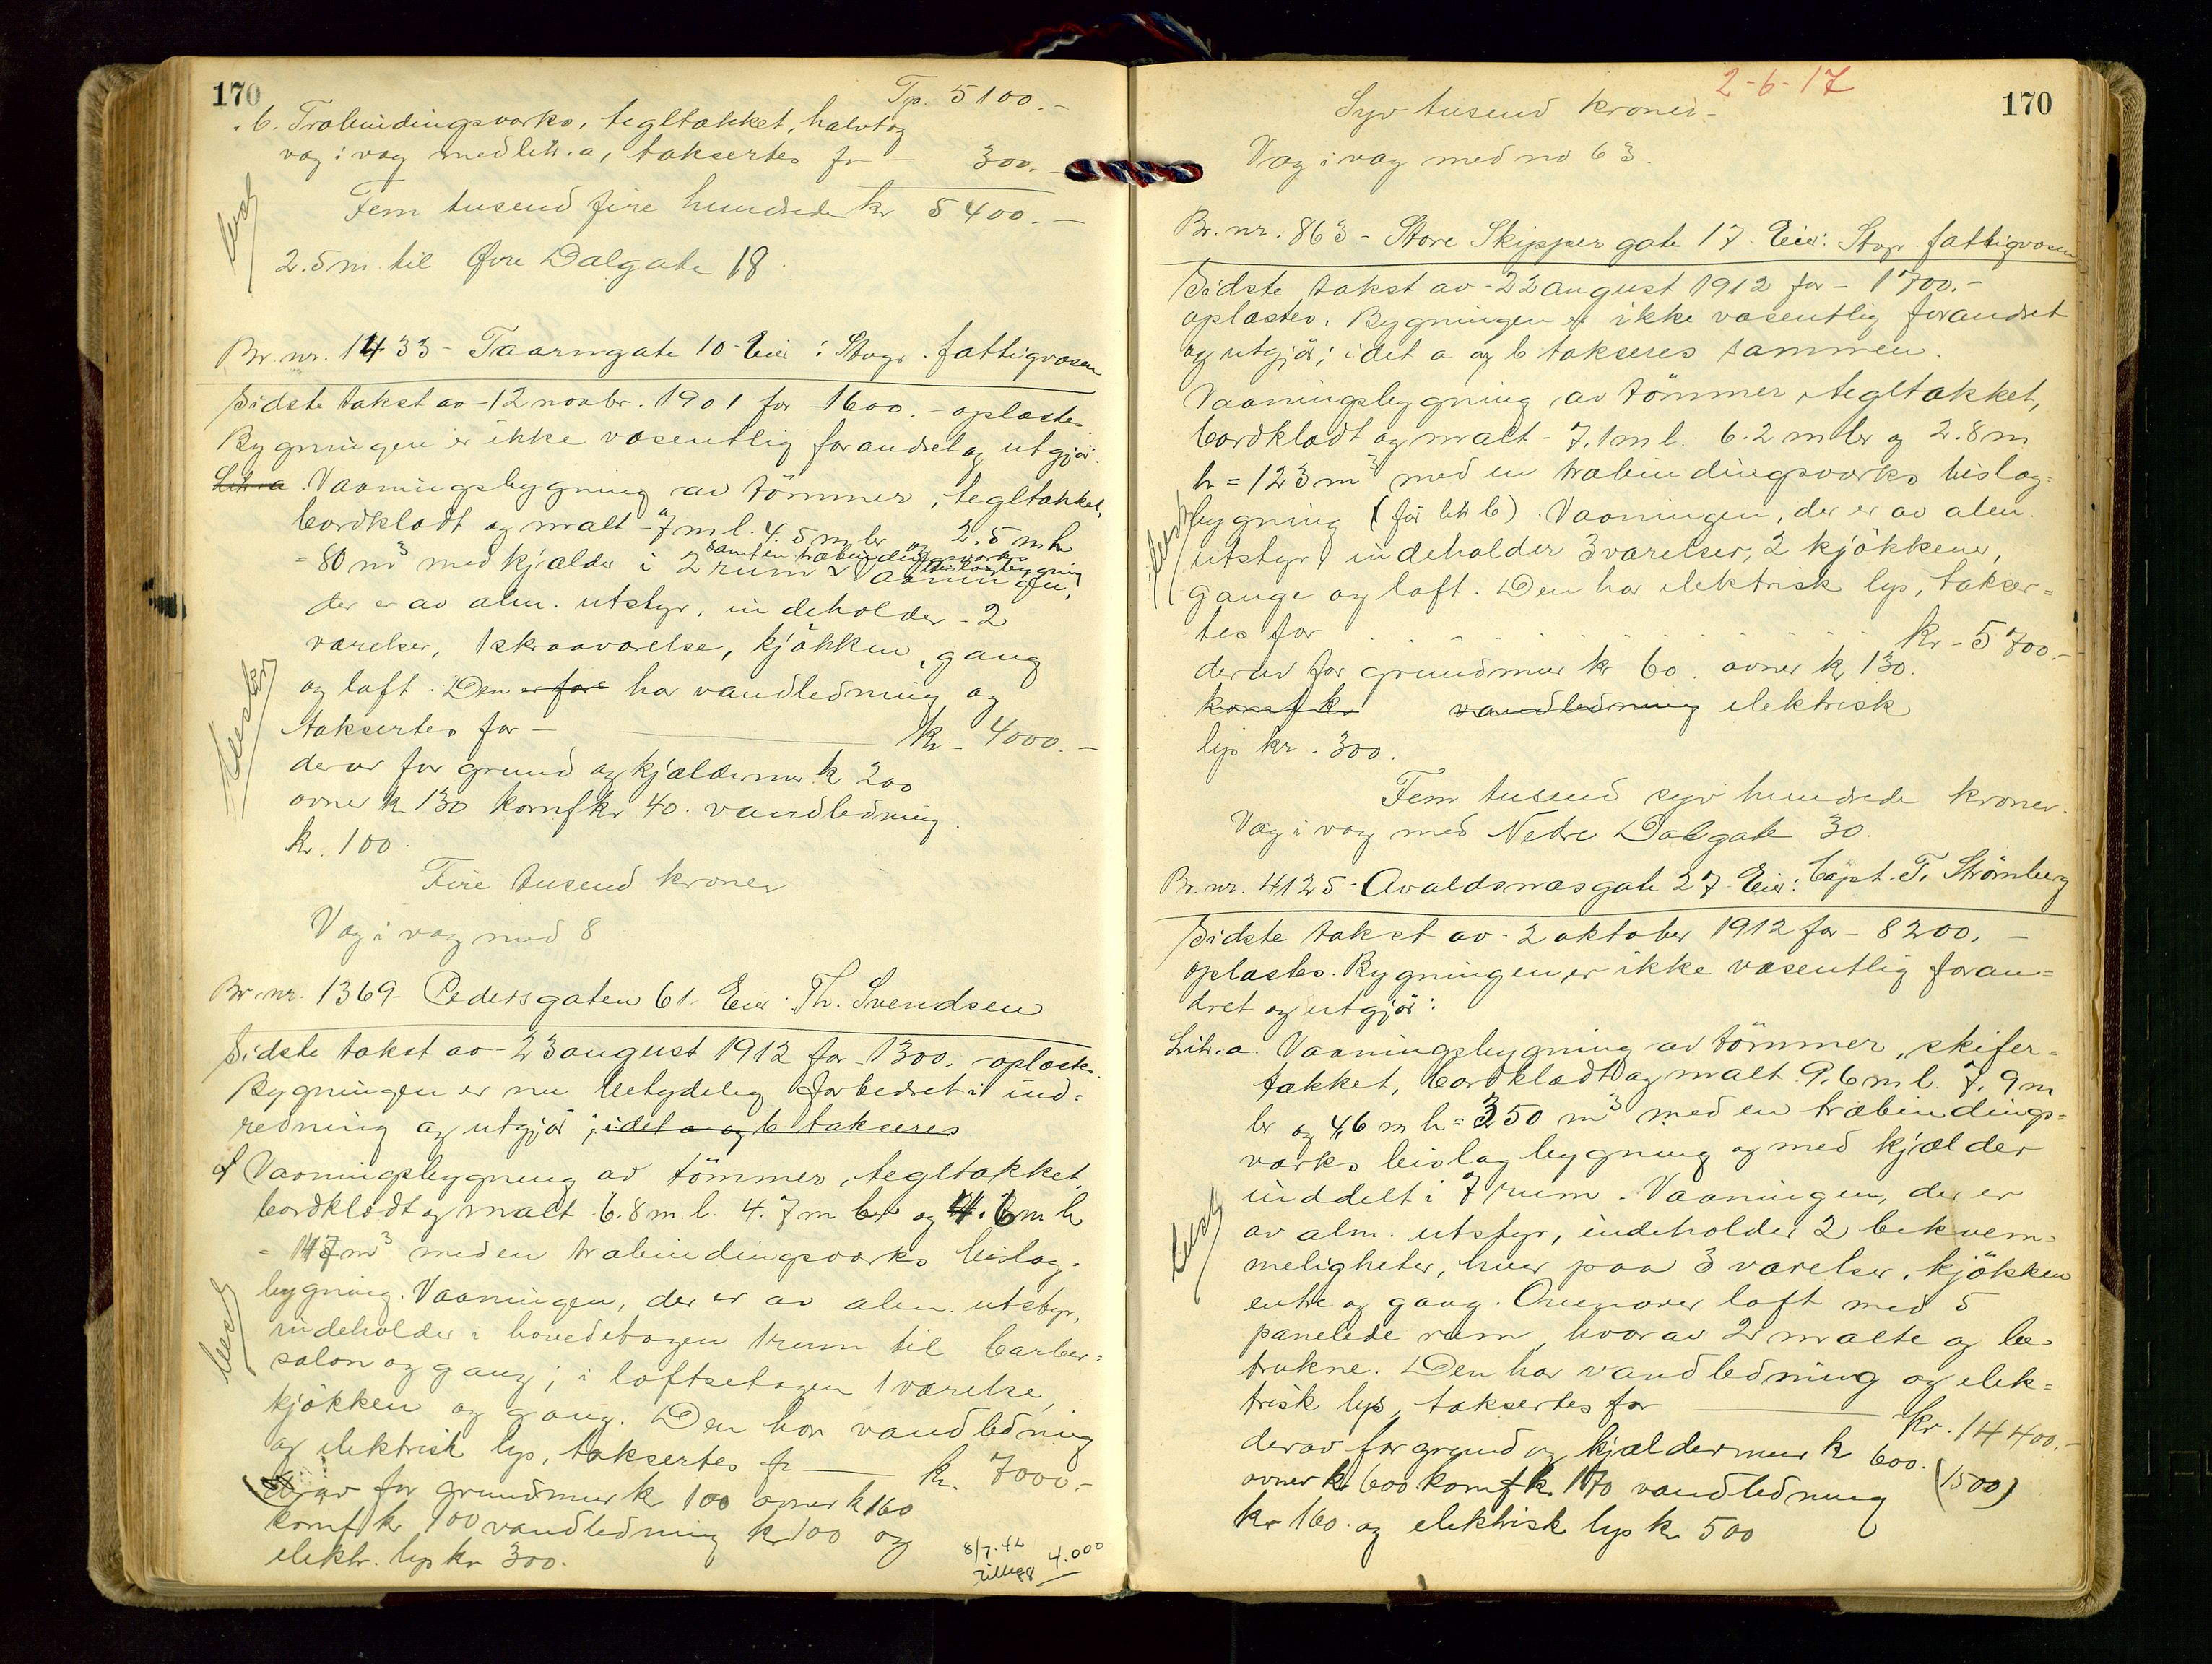 170
Tp. 5100.-
" b. Træbindingsværks, tegltækket, halvtag
væg i væg med litr. a, taksertes for - 300.-
Fem tusend fire hundrede kr 5400.-
2.5 m. til Øvre Dalgate 18.
Br. nr. 1433 - Taarngate 10 - Eier: Stvgr. fattigvæsen
Sidste takst av - 12 novbr. 1901 for - 1600.- oplæstes.
Bygningen er ikke væsentlig forandret og utgjör:
Litr. a Vaaningsbygning av tömmer, tegltækket,
bordklædt og malt - 7 m l. 4.5 m br og 2.5 m h
= 80 m³ med kjælder i 2 rum samt en træbindingsværks bislagbygning Vaaningen,
der er av alm. utstyr, indeholder - 2
værelser, 1 skraaværelse, kjökken, gang
og loft. Den er for har vandledning og
taksertes for - kr. 4000.-
derav for grund og kjældermur kr 200
ovner kr 130 komf kr 40. vandledning
kr. 100.
Fire tusend kroner
Væg i væg med 8
Br. nr. 1369 - Pedersgaten 61. Eier: Th. Svendsen
Sidste takst av - 23 august 1912 for 1300. - oplæstes.
Bygningen er nu betydelig forbedret i ind-
redning og utgjör; idet a og b takseres
Vaaningsbygning av tömmer, tegltækket,
bordklædt og malt 6.8 m. l. 4.7 m br og 4.6 m h
= 147 m³ med en træbindingsværks bislag-
bygning. Vaaningen, der er av alm. utstyr,
indeholder i hovedetagen 1 rum til barber-
salon og gang; i loftsetagen 1 værelse,
kjökken og gang. Den har vandledning
og elektrisk lys, taksertes for kr. 7000.-
derav for grundmur kr 100 ovner kr 160
komf kr 100 vandledning kr 100 og
elektr. lys kr 300.
8/7.42
Tillegg 4.000
2-6-17
170
Syv tusend kroner -
Væg i væg med no 63.
Br. nr. 863 - Store Skippergate 17. Eier: Stvgr. fattigvæsen
Sidste takst av - 22 august 1912 for - 1700.-
oplæstes. Bygningen er ikke væsentlig forandret
og utgjör; idet a og b takseres sammen.
Vaaningsbygning av tömmer, tegltækket,
bordklædt og malt - 7.1 m l. 6.2 m br og 2.8 m
h = 123 m³ med en træbindingsværks bislag-
bygning (för litr b). Vaaningen, der er av alm.
utstyr indeholder 3 værelser, 2 kjökkener,
gange og loft. Den har elektrisk lys, takser-
tes for kr - 5700.-
derav for grundmur kr 60. ovner kr 130.
komf kr vandledning elektrisk
lys kr. 300.
Fem tusend syv hundrede kroner.
Væg i væg med Nedre Dalgate 30.
Br. nr. 4125 - Avaldsnæsgate 27. Eier: Capt. T. Strömberg
Sidste takst av - 2 oktober 1912 for - 8200.-
oplæstes. Bygningen er ikke væsentlig foran-
dret og utgjör:
Litr. a. Vaaningsbygning av tömmer, skifer-
tækket, bordklædt og malt. 9.6 m l. 7.9 m
br og 4.6 m h = 350 m³ med en træbindings-
værks bislagbygning og med kjælder
inddelt i 7 rum. Vaaningen, der er
av alm. utstyr, indeholder 2 bekvem-
meligheter, hver paa 3 værelser, kjökken
entre og gang. Ovenover loft med 5
panelede rum, hvorav 2 malte og be-
trukne. Den har vandledning og elek-
trisk lys, taksertes for kr. 14400.-
derav for grund og kjældermur kr 600. (1500)
ovner kr 600. komf kr. 170 vandledning
kr 160. og elektrisk lys kr 500